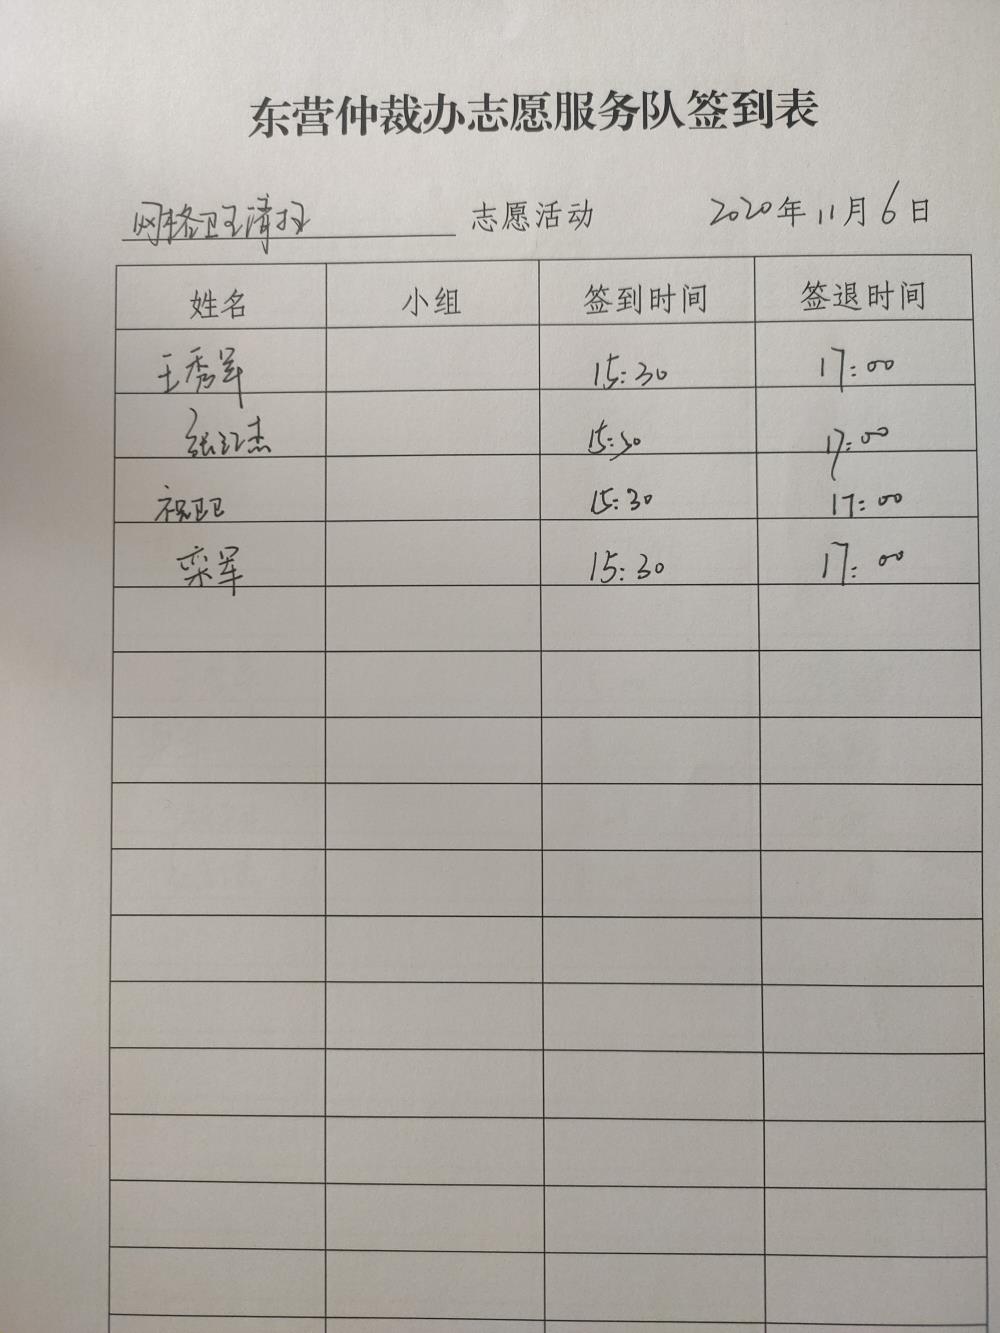 东营仲裁办志愿服务队签到表
网格卫生清扫 志愿活动 2020年11月6日
姓名 小组 签到时间 签退时间
王秀军 15:30 17:00
张江杰 15:30 17:00
祝卫卫 15:30 17:00
栾军 15:30 17:00